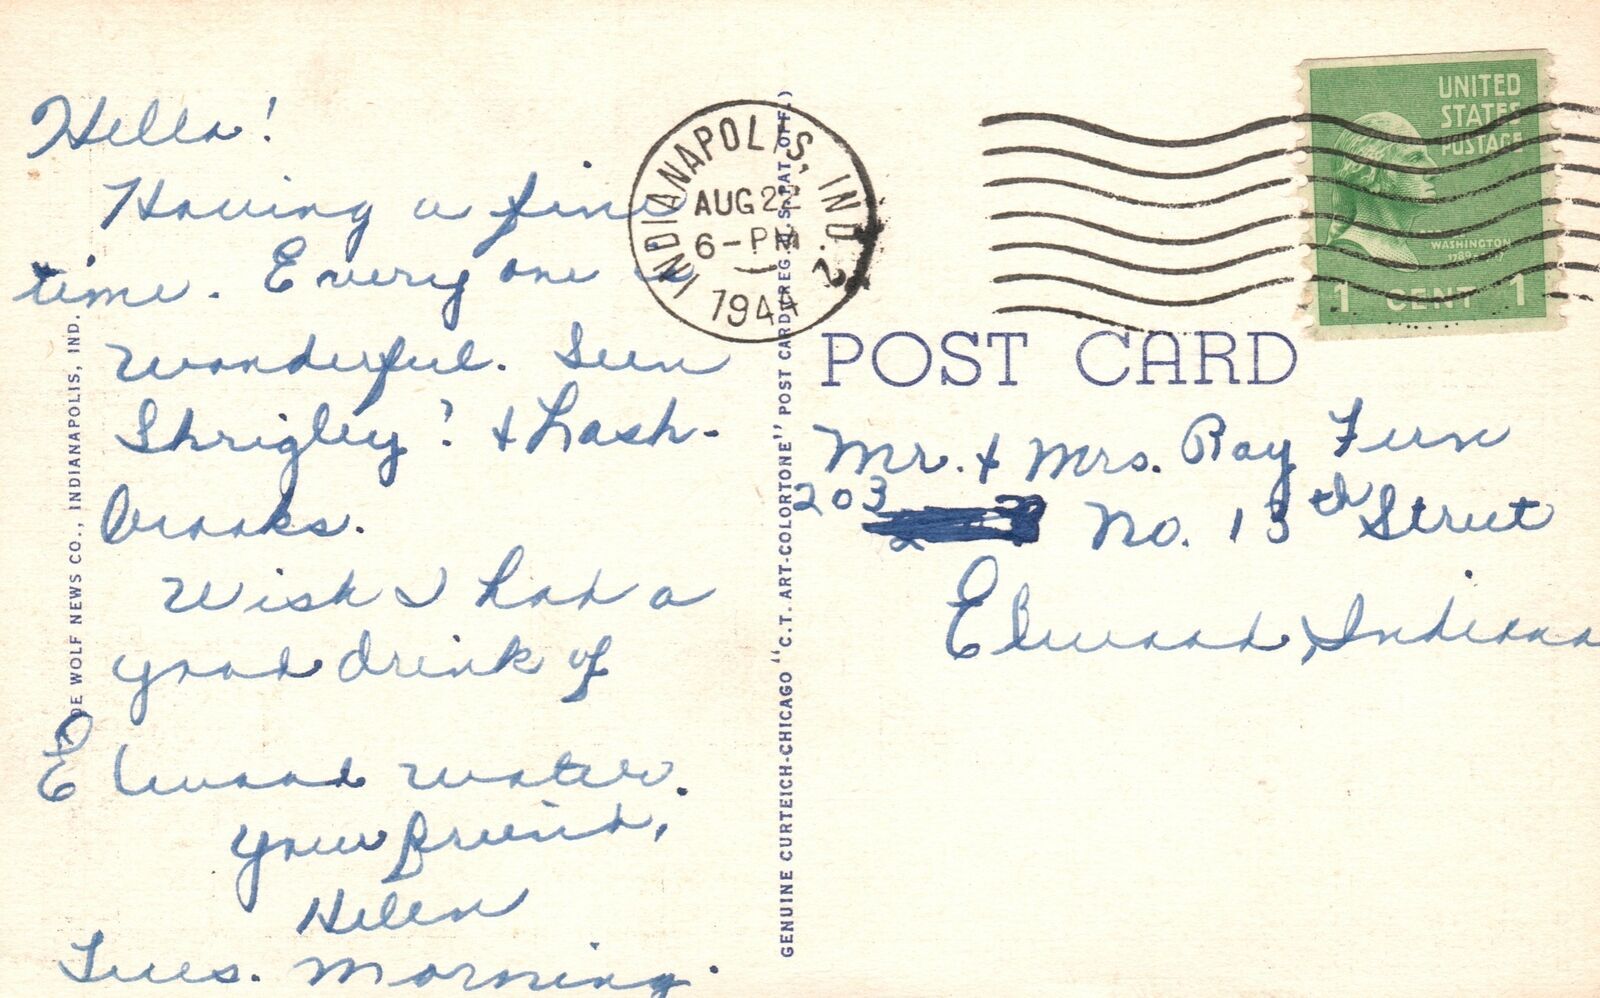 Hello!
Having a fine
time. Every one is
wonderful. Seen
Shrigley? + Lash-
brooks.
Wish I had a
good drink of
Elwood water.
Your friend,
Helen
Tues. Morning.
DE WOLF NEWS CO., INDIANAPOLIS, IND.
GENUINE CURTEICH-CHICAGO "C.T. ART-COLORTONE" POST CARD (REG. U.S. PAT. OFF.)
INDIANAPOLIS, IND. 2
AUG 22
6-PM
1944
UNITED
STATES
POSTAGE
WASHINGTON
1 CENT 1
POST CARD
Mr. + Mrs. Ray Fern
203 No. 13th Street
Elwood, Indiana